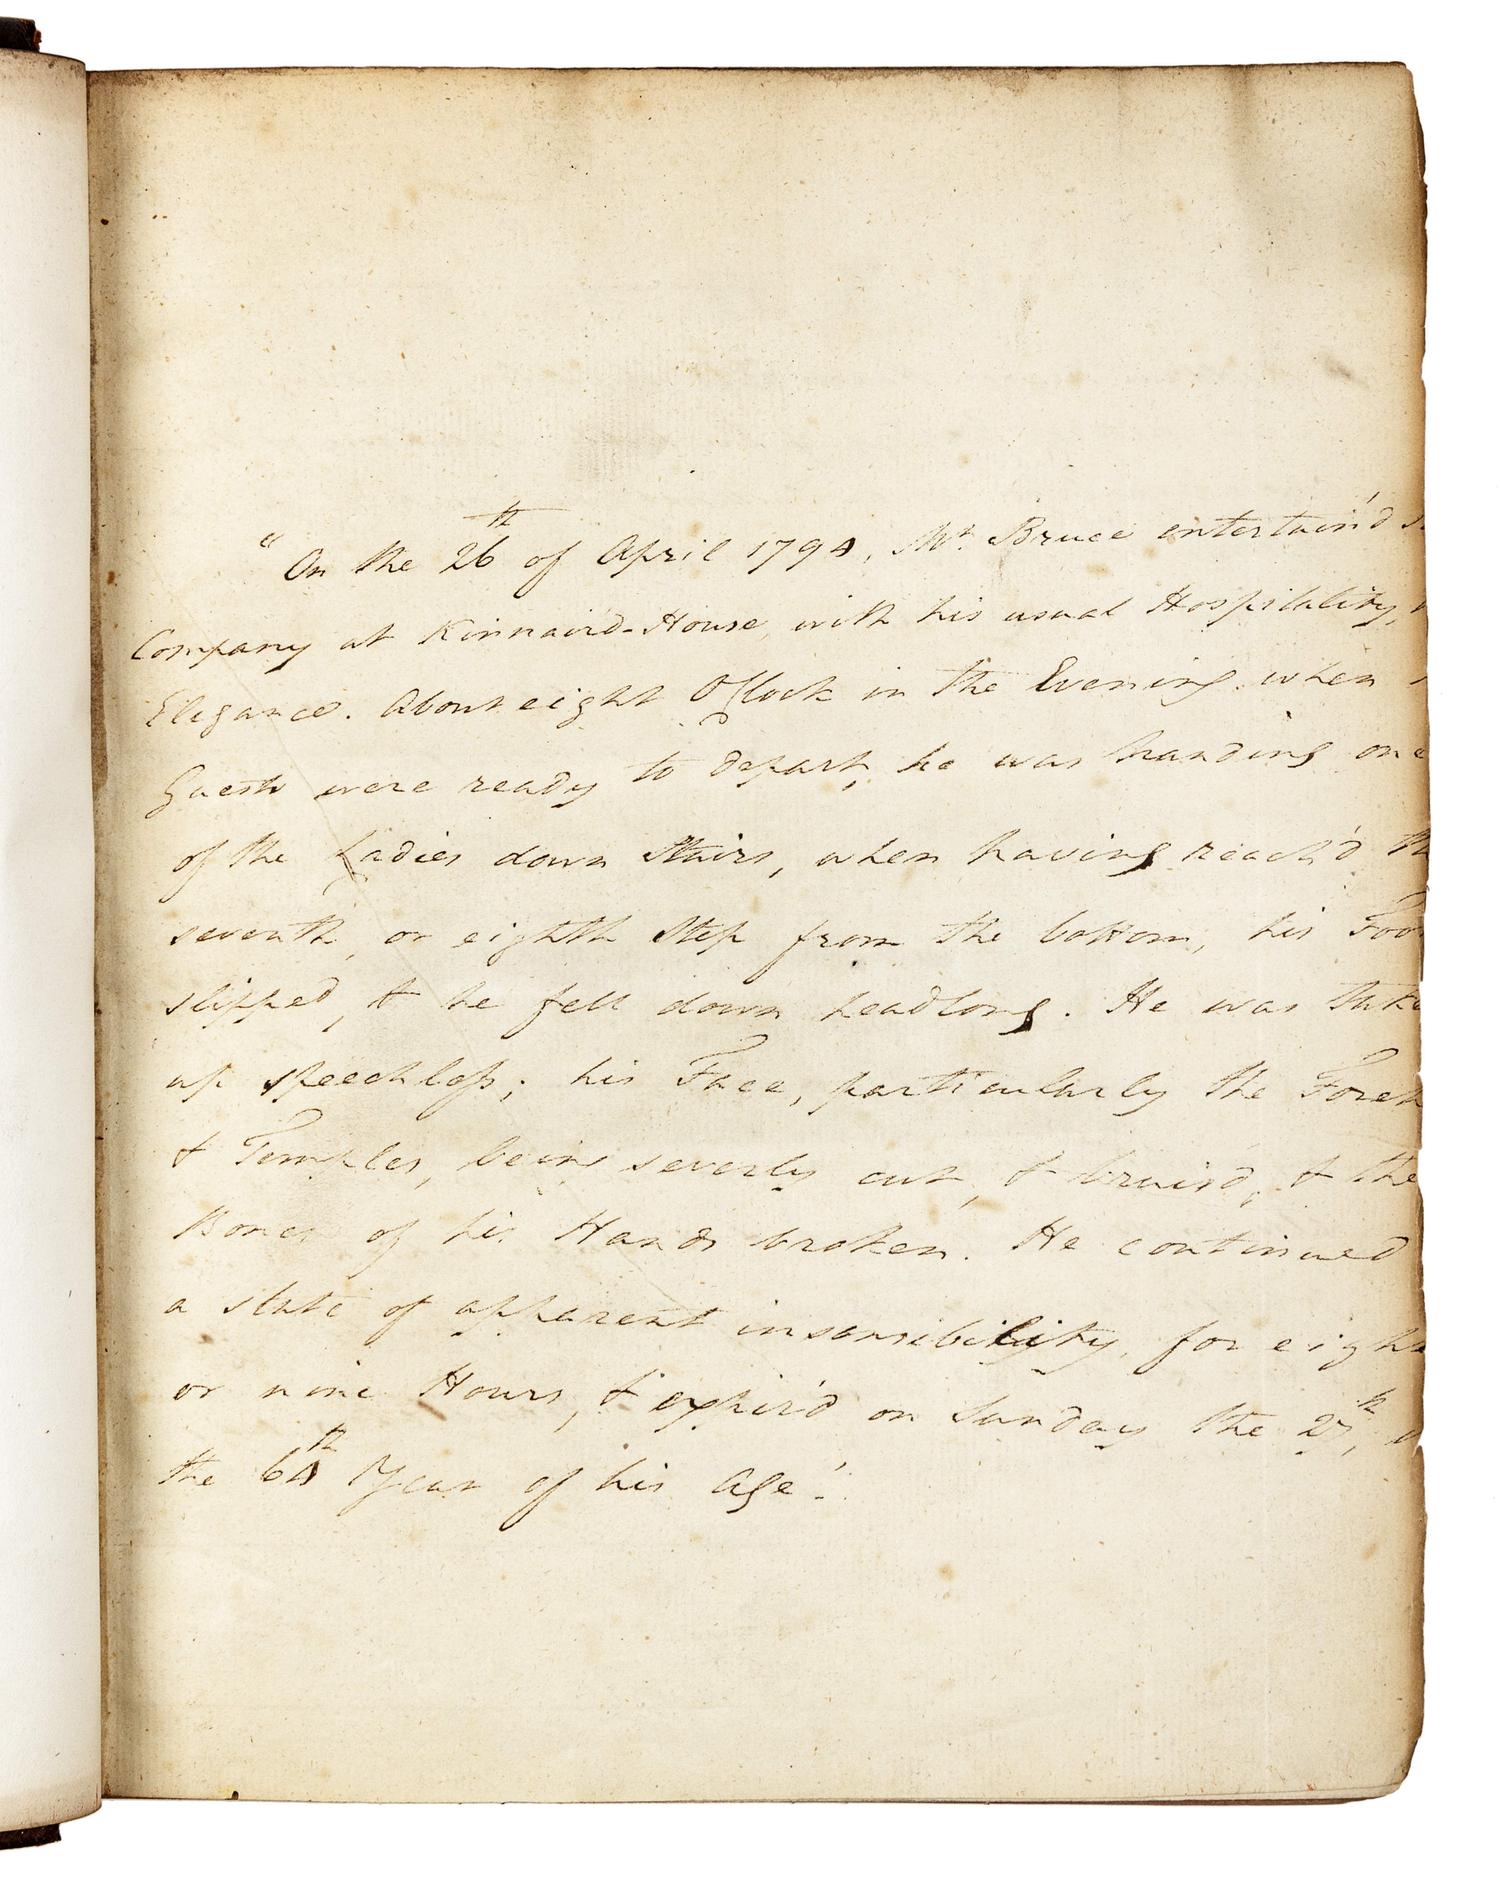 "On the 26th of April 1794, Mr. Bruce entertain'd
Company at Kinnaird-House, with his usual Hospitality,
Elegance. About eight O'Clock in the Evening when
Guests were ready to depart, he was handing one
of the Ladies down Stairs, when having reach'd th
seventh, or eighth Step from the bottom, his Foo
slipped, & he fell down headlong. He was take
up speechless; his Face, particularly the Foreh
& Temples, being severly cut, & bruis'd, & the
Bones of his Hands broken. He continued
a state of apparent insensibility, for eight
or nine Hours, & expir'd on Sunday the 27th,
the 64th Year of his Age".